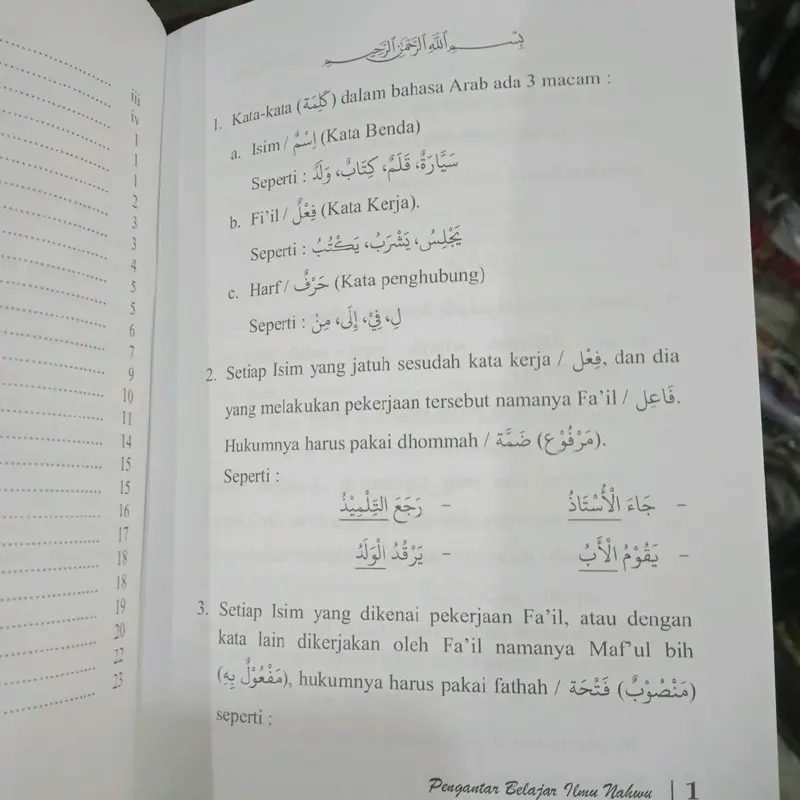 iii
iv
1
1
1
2
3
3
4
5
5
6
7
9
10
11
14
15
15
16
17
18
18
19
20
22
23
بِسْمِ اللَّهِ الرَّحْمَنِ الرَّحِيمِ
1. Kata-kata (كَلِمَة) dalam bahasa Arab ada 3 macam :
a. Isim / اِسْمٌ (Kata Benda)
Seperti : سَيَّارَةٌ، قَلَمٌ، كِتَابٌ، وَلَدٌ
b. Fi'il / فِعْلٌ (Kata Kerja).
Seperti : يَجْلِسُ، يَشْرَبُ، يَكْتُبُ
c. Harf / حَرْفٌ (Kata penghubung)
Seperti : لِ، فِيْ، إِلَى، مِنْ
2. Setiap Isim yang jatuh sesudah kata kerja / فِعْل, dan dia
yang melakukan pekerjaan tersebut namanya Fa'il / فَاعِل.
Hukumnya harus pakai dhommah / ضَمَّة (مَرْفُوْع).
Seperti :
- جَاءَ الْأُسْتَاذُ - رَجَعَ التِّلْمِيْذُ
- يَقُوْمُ الْأَبُ - يَرْقُدُ الْوَلَدُ
3. Setiap Isim yang dikenai pekerjaan Fa'il, atau dengan
kata lain dikerjakan oleh Fa'il namanya Maf'ul bih
(مَفْعُوْلٌ بِهِ), hukumnya harus pakai fathah / فَتْحَة (مَنْصُوْبٌ)
seperti :
Pengantar Belajar Ilmu Nahwu | 1